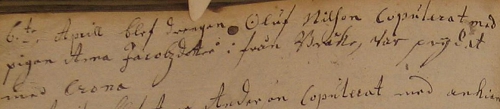 6te Aprill blef drengen Oluf Nilson Copulerat med
pigan Anna Jacobzdotter ifrån Brake, var prydt
med Crona
Anderson Copulerat med